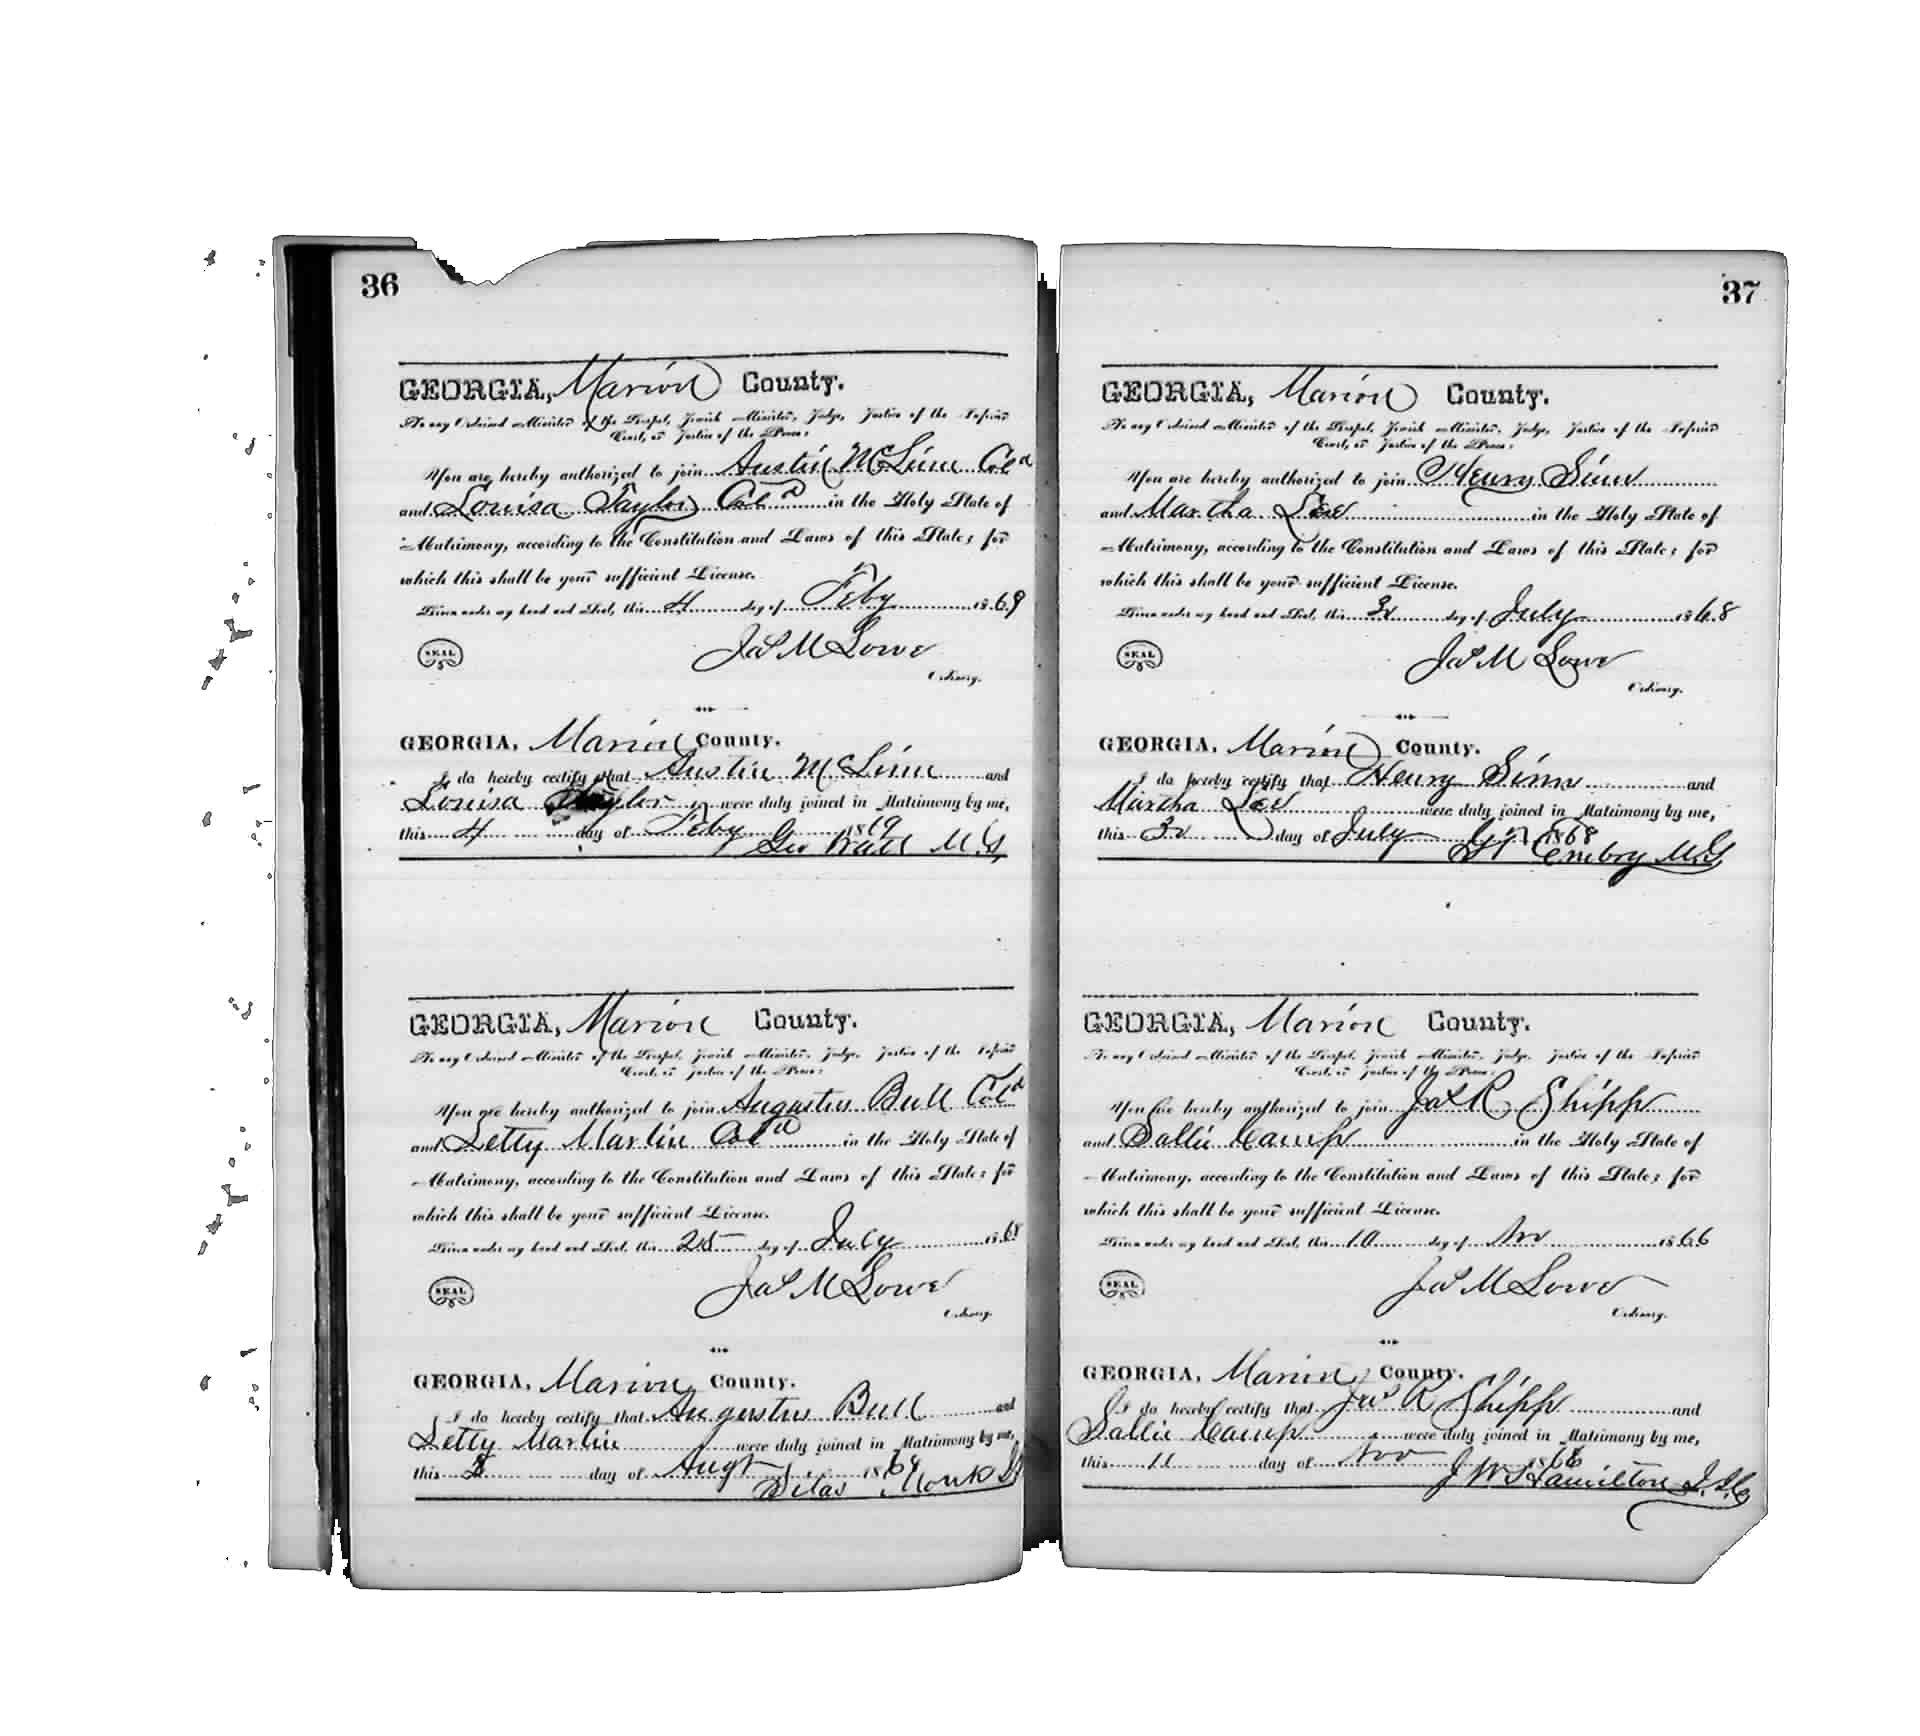 36
GEORGIA, Marion County.
To any Ordained Minister of the Gospel, Jewish Minister, Judge, Justice of the Inferior
Court, or Justice of the Peace:
You are hereby authorized to join Austin McLinn Cold
and Louisa Taylor Cold in the Holy State of
Matrimony, according to the Constitution and Laws of this State; for
which this shall be your sufficient License.
Given under my hand and Seal, this 4 day of Feby 1869
SEAL
Jas M Lowe
Ordinary.
GEORGIA, Marion County.
I do hereby certify that Austin McLinn and
Louisa Taylor were duly joined in Matrimony by me,
this 4 day of Feby 1869
Geo M.G.
GEORGIA, Marion County.
To any Ordained Minister of the Gospel, Jewish Minister, Judge, Justice of the Inferior
Court, or Justice of the Peace:
You are hereby authorized to join Augustus Bull Cold
and Letty Martin Cold in the Holy State of
Matrimony, according to the Constitution and Laws of this State; for
which this shall be your sufficient License.
Given under my hand and Seal, this 25 day of July 1868
SEAL
Jas M Lowe
Ordinary.
GEORGIA, Marion County.
I do hereby certify that Augustus Bull and
Letty Martin were duly joined in Matrimony by me,
this day of Augt 186
Silas Monk
37
GEORGIA, Marion County.
To any Ordained Minister of the Gospel, Jewish Minister, Judge, Justice of the Inferior
Court, or Justice of the Peace:
You are hereby authorized to join Henry Sinn
and Martha Lee in the Holy State of
Matrimony, according to the Constitution and Laws of this State; for
which this shall be your sufficient License.
Given under my hand and Seal, this day of July 1868
SEAL
Jas M Lowe
Ordinary.
GEORGIA, Marion County.
I do hereby certify that Henry Sinn and
Martha Lee were duly joined in Matrimony by me,
this day of July 1868
Embry M.G.
GEORGIA, Marion County.
To any Ordained Minister of the Gospel, Jewish Minister, Judge, Justice of the Inferior
Court, or Justice of the Peace:
You are hereby authorized to join Jas R Shipp
and Sallie Camp in the Holy State of
Matrimony, according to the Constitution and Laws of this State; for
which this shall be your sufficient License.
Given under my hand and Seal, this 10 day of Nov 1866
SEAL
Jas M Lowe
Ordinary.
GEORGIA, Marion County.
I do hereby certify that Jas R Shipp and
Sallie Camp were duly joined in Matrimony by me,
this 11 day of Nov 1866
J W Hamilton J.I.C.